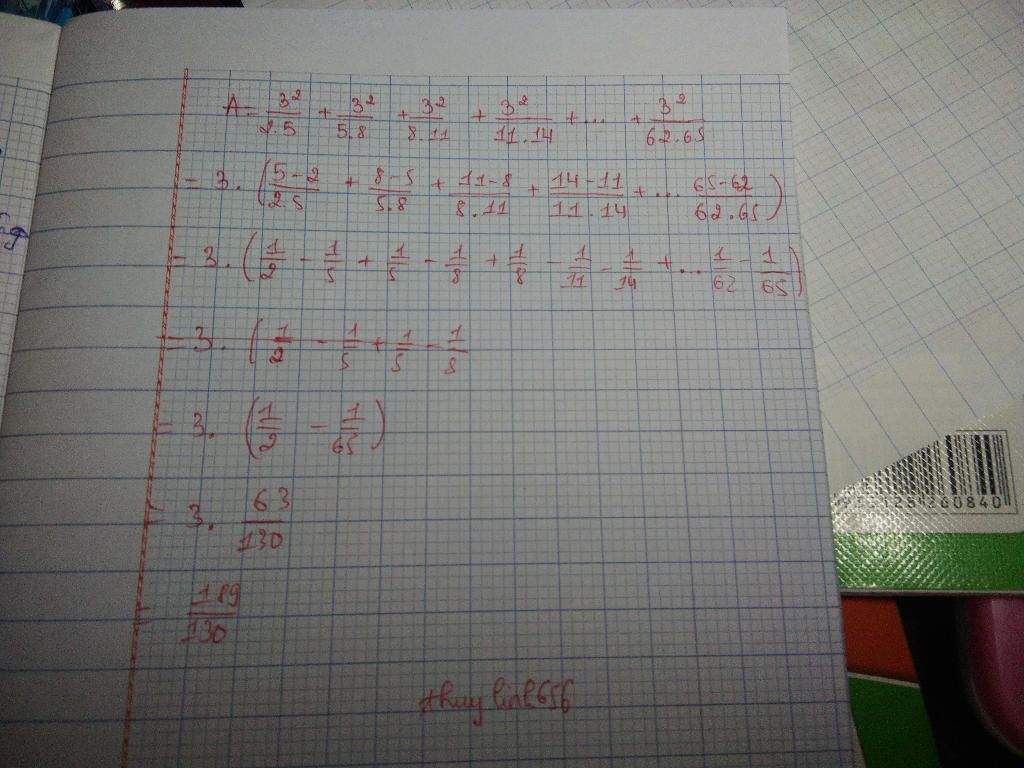 A = 3²/2.5 + 3²/5.8 + 3²/8.11 + 3²/11.14 + ... + 3²/62.65
= 3. (5-2/2.5 + 8-5/5.8 + 11-8/8.11 + 14-11/11.14 + ... 65-62/62.65)
= 3. (1/2 - 1/5 + 1/5 - 1/8 + 1/8 - 1/11 - 1/14 + ... 1/62 - 1/65)
= 3. (1/2 - 1/5 + 1/5 - 1/8
= 3. (1/2 - 1/65)
= 3. 63/130
= 189/130